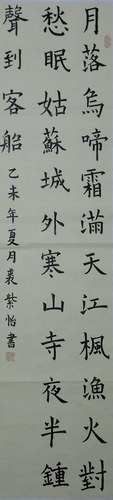 月落烏啼霜滿天江楓漁火對
愁眠姑蘇城外寒山寺夜半鍾
聲到客船乙未年夏月裘紫怡書